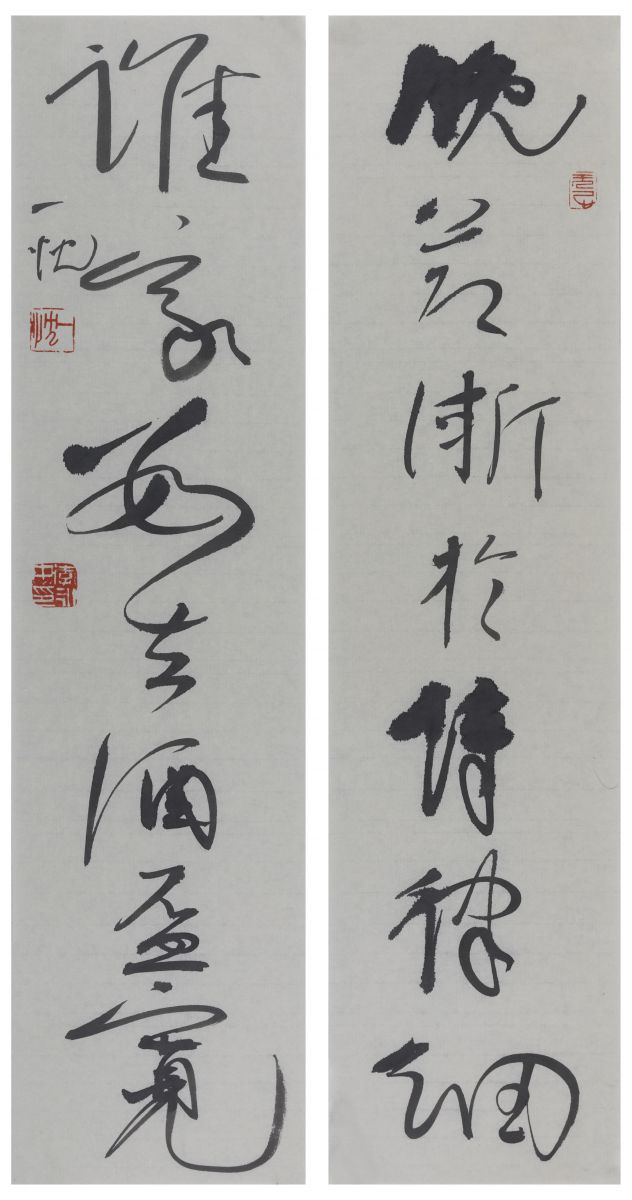 晚節漸於詩律細
誰家數去酒盃寬
一忱